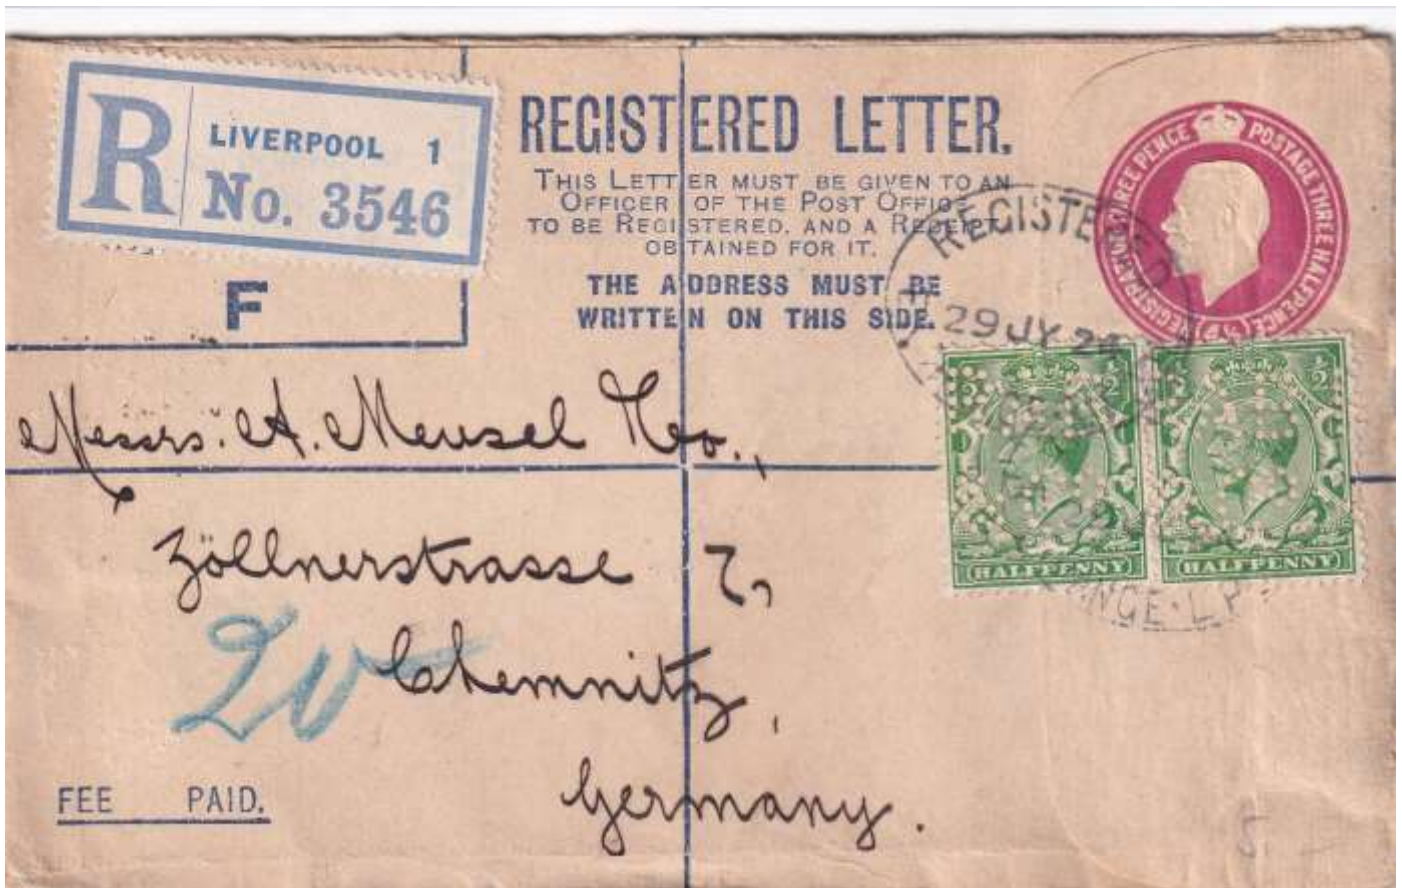 R LIVERPOOL 1
No. 3546
F
REGISTERED LETTER.
THIS LETTER MUST BE GIVEN TO AN
OFFICER OF THE POST OFFICE
TO BE REGISTERED, AND A RECEIPT
OBTAINED FOR IT.
THE ADDRESS MUST BE
WRITTEN ON THIS SIDE.
REGISTRATION THREE PENCE POSTAGE THREE HALFPENCE
REGISTERED
29 JY 24
½ ½
HALFPENNY HALFPENNY
Messrs. A. Meusel & Co.,
Zöllnerstrasse 7,
Chemnitz,
Germany.
FEE PAID.